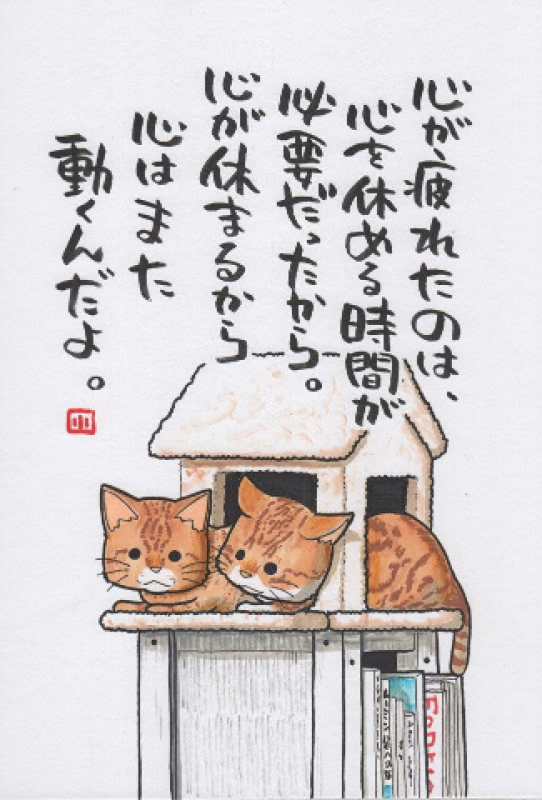 心が疲れたのは、
心を休める時間が
必要だったから。
心が休まるから
心はまた
動くんだよ。
小